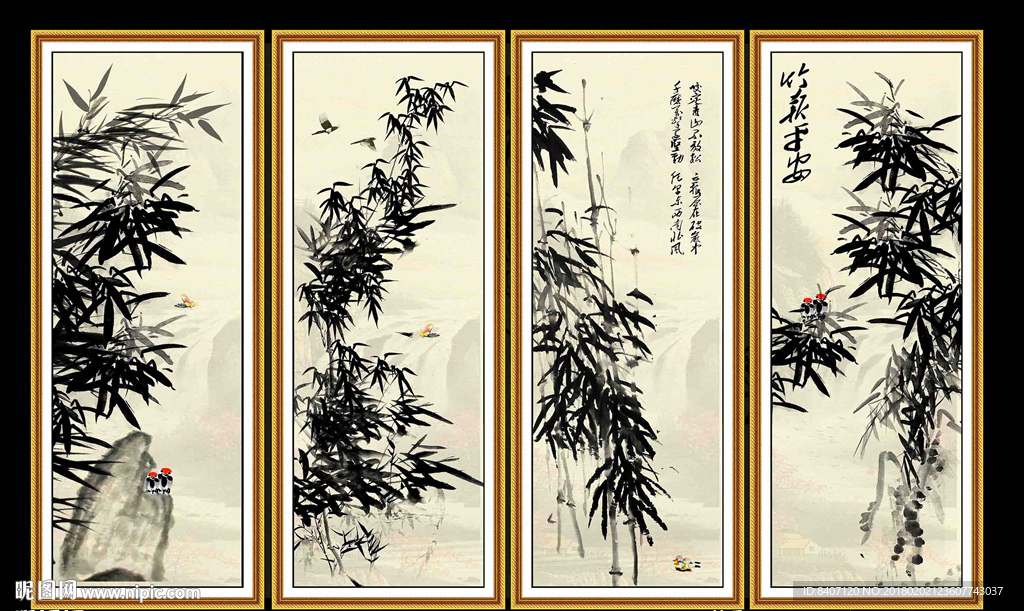 咬定青山不放松 立根原在破岩中
千磨万击还坚劲 任尔东西南北风
竹报平安
昵图网 www.nipic.com
ID:8407120 NO:20180202123607743037